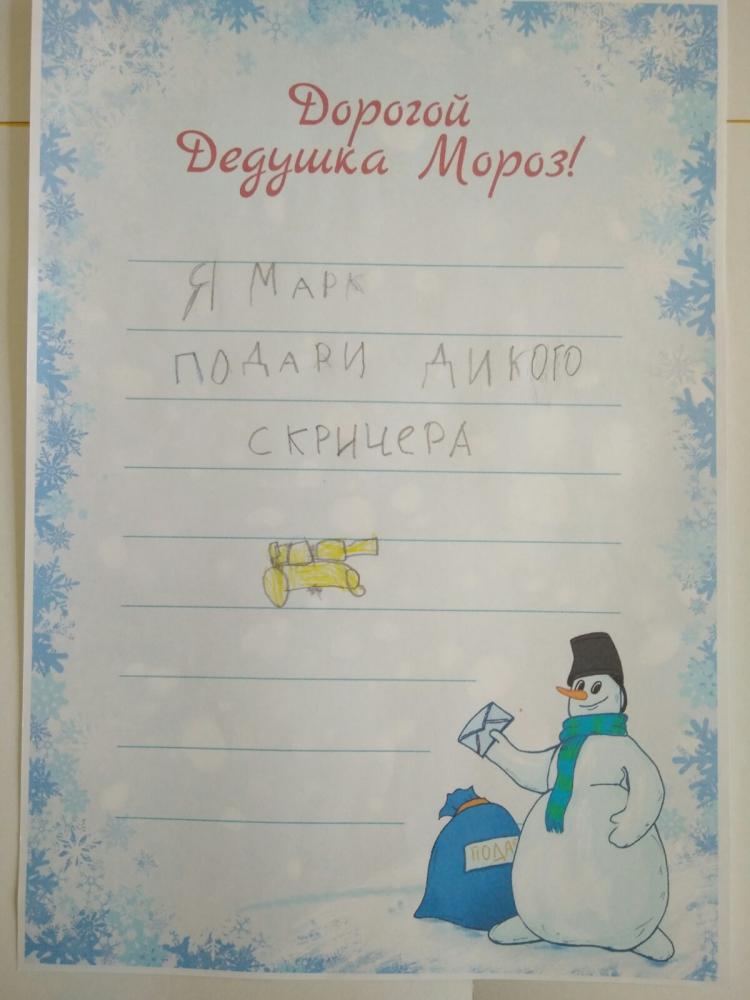 Дорогой
Дедушка Мороз!
Я МАРК
ПОДАРИ ДИКОГО
СКРИЧЕРА
ПОДА